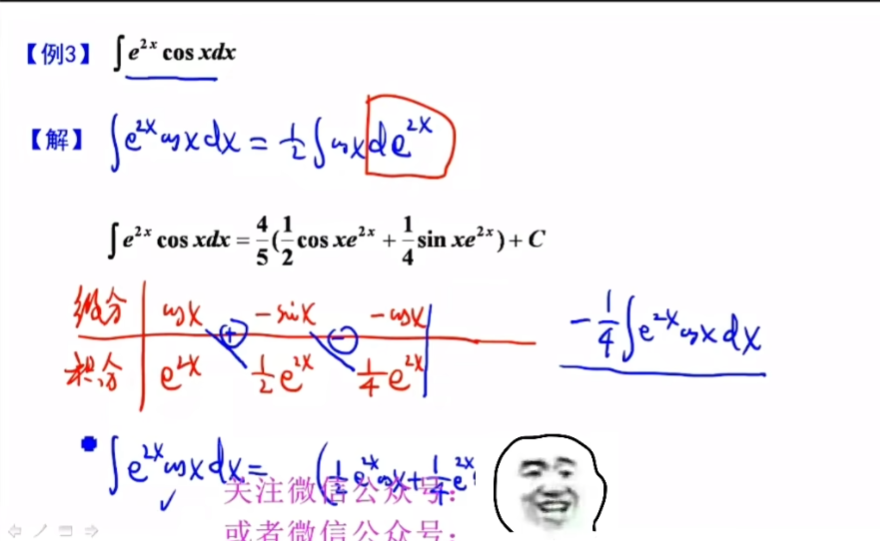 【例3】 ∫e^{2x} cos xdx
【解】 ∫e^{2x}cosxdx = 1/2 ∫cosxde^{2x}
∫e^{2x} cos xdx = 4/5(1/2 cos xe^{2x} + 1/4 sin xe^{2x}) + C
微分 cosx ⊕ -sinx ⊖ -cosx
积分 e^{2x} 1/2e^{2x} 1/4e^{2x}
-1/4∫e^{2x}cosxdx
∫e^{2x}cosxdx = (1/2e^{2x}cosx+1/4e^{2x}
关注微信公众号:
或者微信公众号: